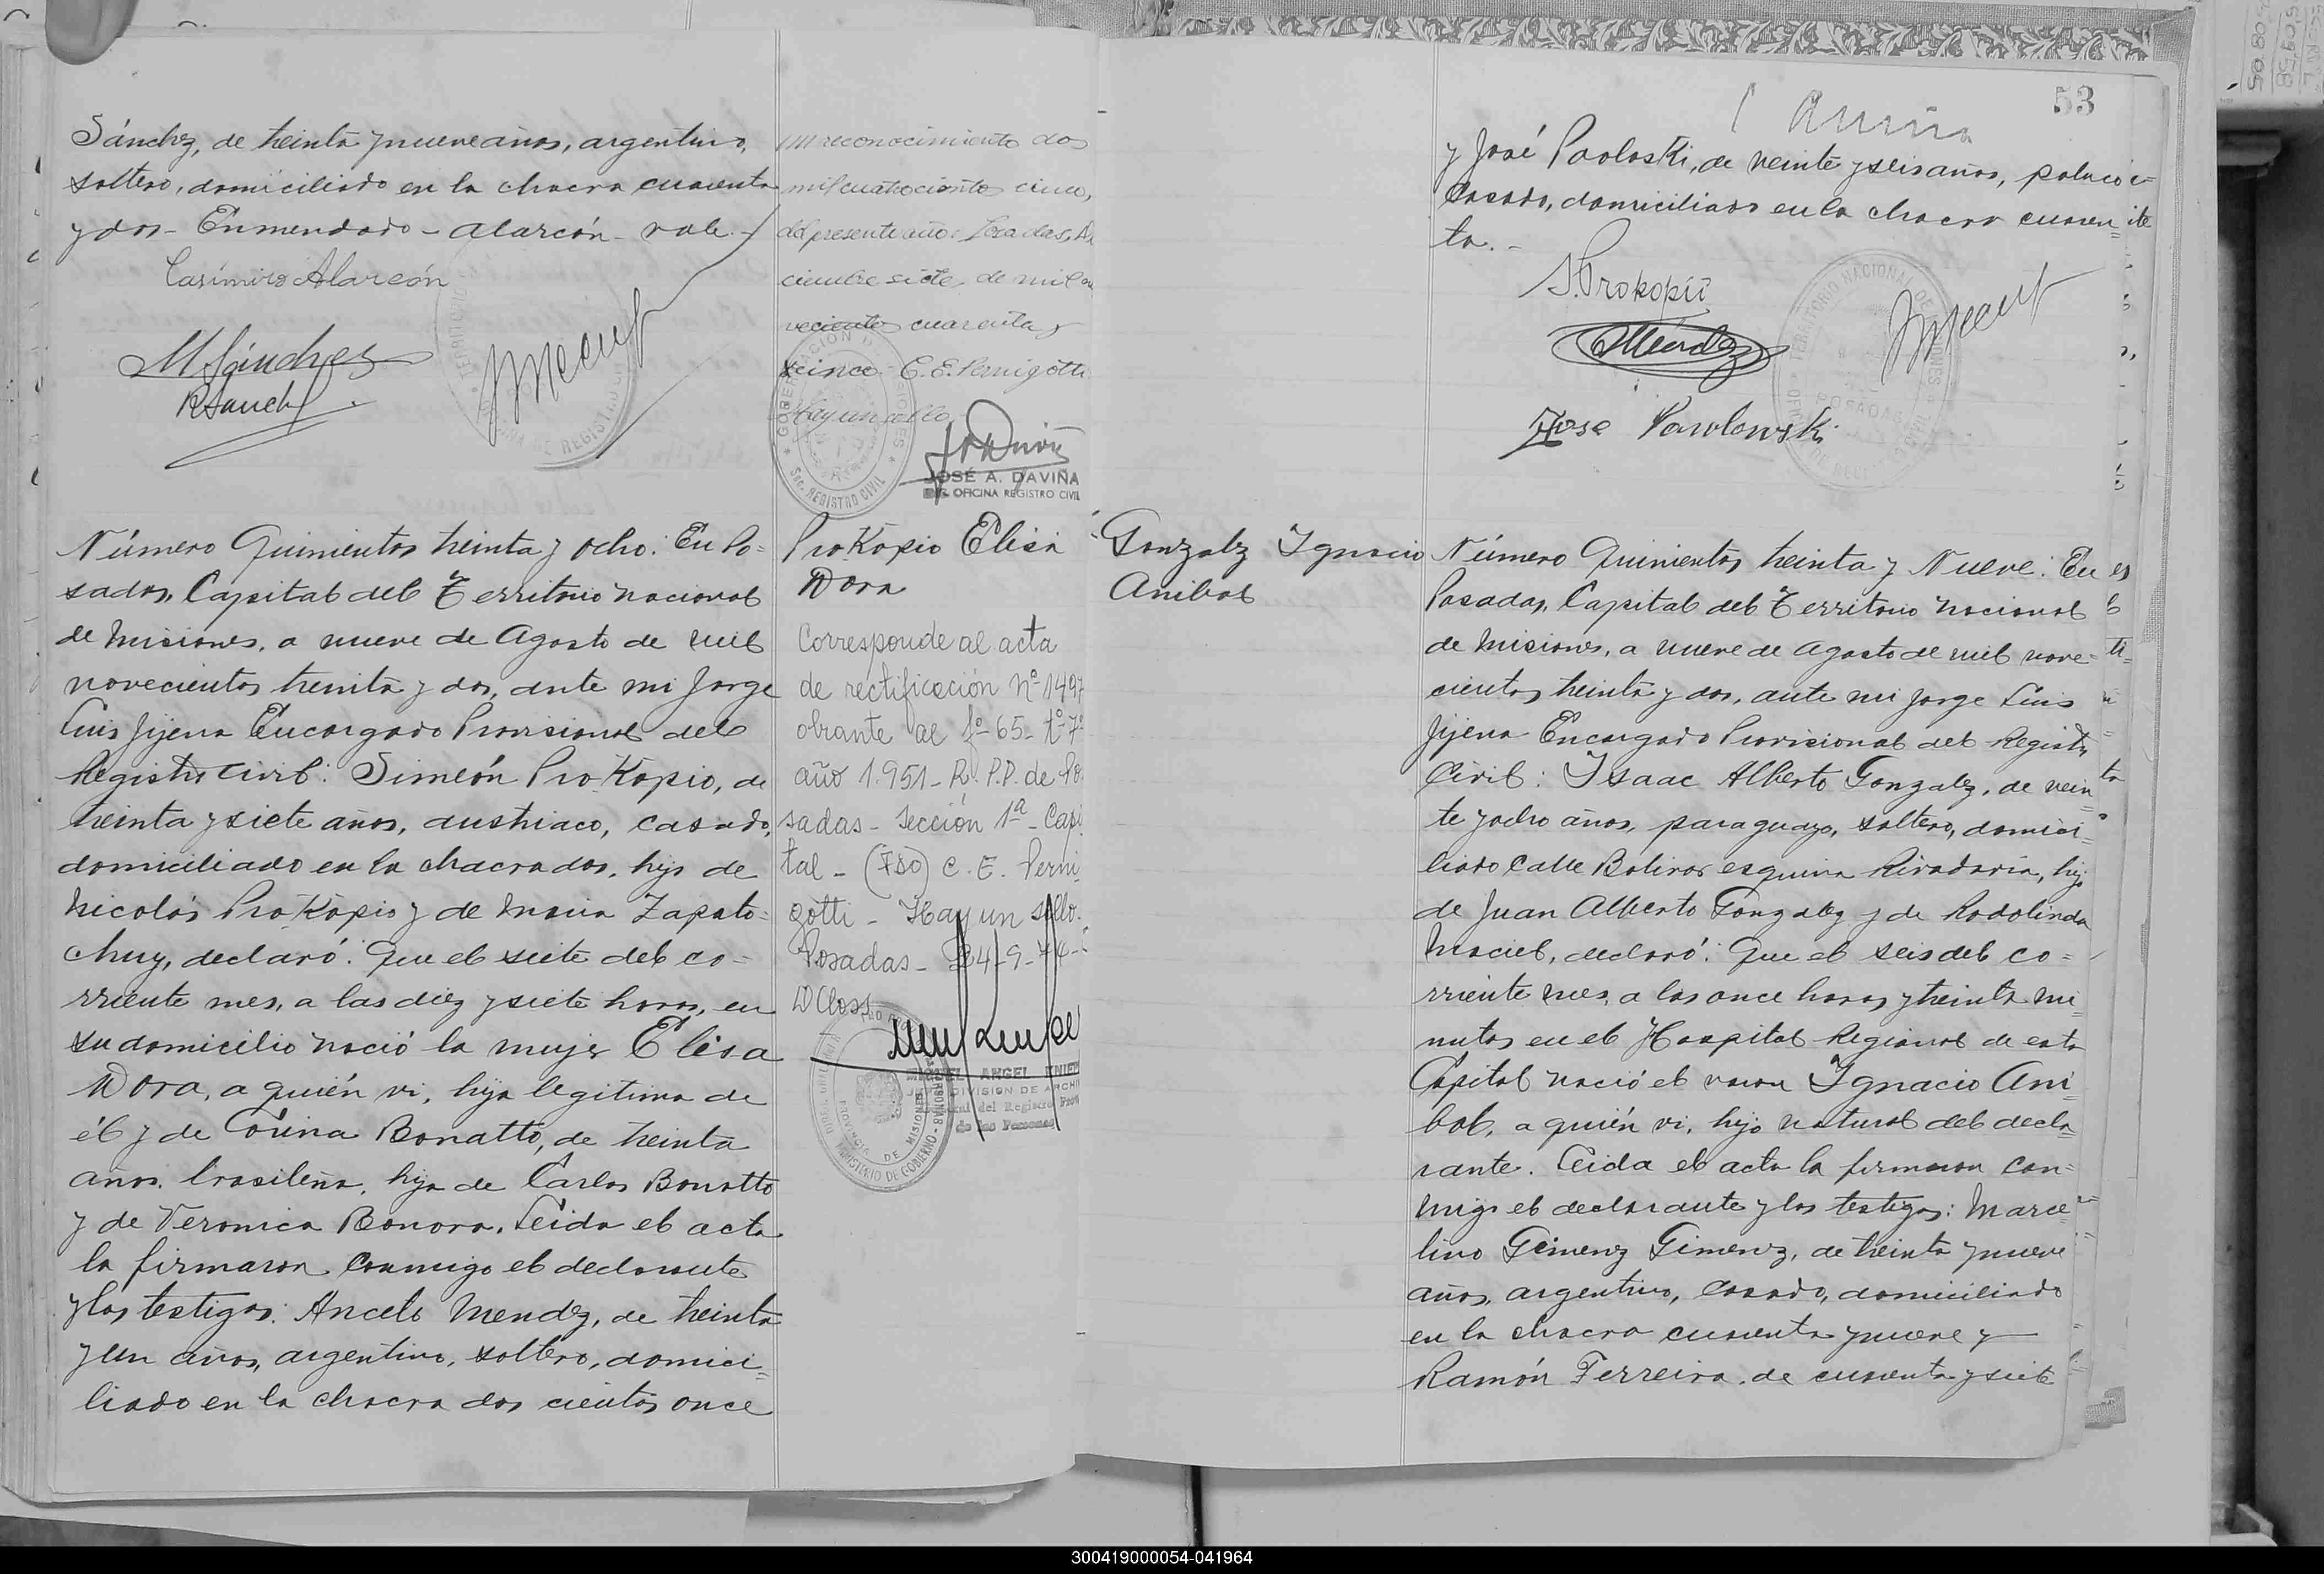 Sánchez, de treinta y nueve años, argentino,
soltero, domiciliado en la chacra cuarenta
y dos - Enmendado - Alarcón - vale. -
Casimiro Alarcón
M Sánchez
RSanch
un reconocimiento dos
mil cuatrocientos cinco,
del presente año. Posadas, Di
ciembre siete, de mil no
vecientos cuarenta y
cinco - C. E. Pernigotti
Hay un sello
GOBERNACION DE MISIONES
SEC. REGISTRO CIVIL
JOSÉ A. DAVIÑA
OFICINA REGISTRO CIVIL
Número Quinientos treinta y ocho: En Po=
sadas, Capital del Territorio nacional
de Misiones, a nueve de Agosto de mil
novecientos treinta y dos, ante mi Jorge
Luis Jijena Encargado Provisional del
Registro Civil: Simeón ProKopio, de
treinta y siete años, austriaco, casado,
domiciliado en la chacra dos, hijo de
Nicolás ProKopio y de Maria Zapato=
chuy, declaró: Que el siete del co=
rriente mes, a las diez y siete horas, en
su domicilio nació la mujer Elisa
Dora, a quién vi, hija legitima de
él y de Corina Bonatto, de treinta
años, brasileña, hija de Carlos Bonatto
y de Veronica Bonora. Leida el acta
la firmaron conmigo el declarante
y los testigos: Ancelo Mendez, de treinta
y un años, argentino, soltero, domici=
liado en la chacra dos cientos once
ProKopio Elisa
Dora
Corresponde al acta
de rectificación Nº 1497
obrante al fº 65- tº 7º
año 1.951- R. P.P. de Po
sadas - Sección 1ª - Capi
tal - (780) C. E. Perni
gotti - Hay un sello.
Posadas - 24-9-74-
MIGUEL ANGEL
DIVISION DE ARCHI
del Registro Prov
de las Personas
53
y José Paoloski, de veinte y seis años, polaco
casado, domiciliado en la chacra cuaren=
ta. -
S. Prokopii
AMéndez
Jose Pawlowski
TERRITORIO NACIONAL DE MISIONES
POSADAS
Gonzalez Ignacio
Anibal
Número Quinientos treinta y Nueve: En
Posadas, Capital del Territorio nacional
de Misiones, a nueve de Agosto de mil nove=
cientos treinta y dos, ante mi Jorge Luis
Jijena Encargado Provisional del Registro
Civil: Isaac Alberto Gonzalez, de vein
te y ocho años, paraguayo, soltero, domici=
liado Calle Bolivar esquina Rivadavia, hijo
de Juan Alberto Gonzalez y de Rodolinda
Maciel, declaró: Que el seis del co=
rriente mes, a las once horas y treinta mi
nutos en el Hospital Regional de esta
Capital nació el varon Ignacio Ani
bal, a quién vi, hijo natural del decla
rante. Leida el acta la firmaron con=
migo el declarante y los testigos: Marce=
lino Gimenez Gimenez, de treinta y nueve
años, argentino, casado, domiciliado
en la chacra cuarenta y nueve y
Ramón Ferreira, de cuarenta y siete
300419000054-041964